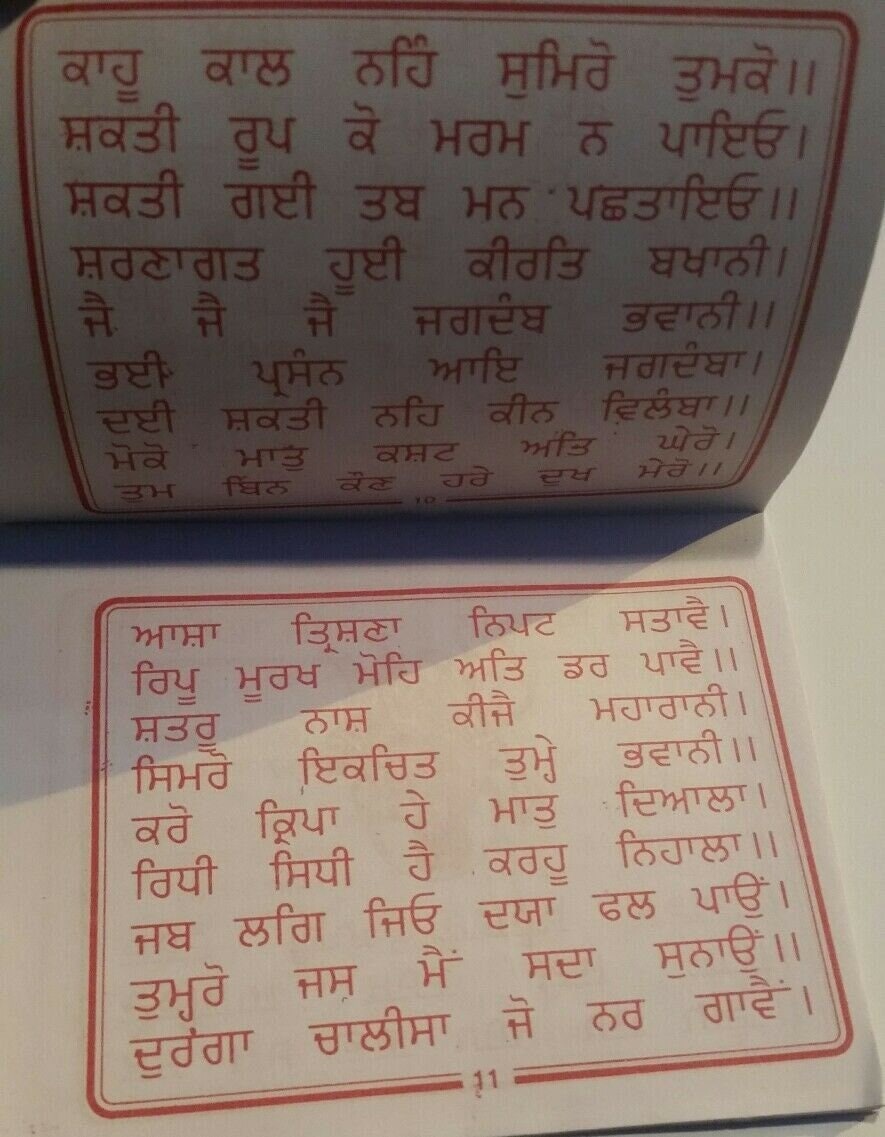 ਕਾਹੂ ਕਾਲ ਨਹਿੰ ਸੁਮਿਰੋ ਤੁਮਕੋ।।
ਸ਼ਕਤੀ ਰੂਪ ਕੋ ਮਰਮ ਨ ਪਾਇਓ।
ਸ਼ਕਤੀ ਗਈ ਤਬ ਮਨ ਪਛਤਾਇਓ।।
ਸ਼ਰਣਾਗਤ ਹੂਈ ਕੀਰਤਿ ਬਖਾਨੀ।
ਜੈ ਜੈ ਜੈ ਜਗਦੰਬ ਭਵਾਨੀ।।
ਭਈ ਪ੍ਰਸੰਨ ਆਇ ਜਗਦੰਬਾ।
ਦਈ ਸ਼ਕਤੀ ਨਹਿ ਕੀਨ ਵਿਲੰਬਾ।।
ਮੋਕੋ ਮਾਤੁ ਕਸ਼ਟ ਅਤਿ ਘੇਰੋ।
ਤੁਮ ਬਿਨ ਕੌਣ ਹਰੇ ਦੁਖ ਮੇਰੋ।।
10
ਆਸ਼ਾ ਤ੍ਰਿਸ਼ਣਾ ਨਿਪਟ ਸਤਾਵੈ।
ਰਿਪੂ ਮੂਰਖ ਮੋਹਿ ਅਤਿ ਡਰ ਪਾਵੈ।।
ਸ਼ਤਰੂ ਨਾਸ਼ ਕੀਜੈ ਮਹਾਰਾਨੀ।
ਸਿਮਰੋ ਇਕਚਿਤ ਤੁਮ੍ਹੇ ਭਵਾਨੀ।।
ਕਰੋ ਕ੍ਰਿਪਾ ਹੇ ਮਾਤੁ ਦਿਆਲਾ।
ਰਿਧੀ ਸਿਧੀ ਹੈ ਕਰਹੂ ਨਿਹਾਲਾ।।
ਜਬ ਲਗਿ ਜਿਓ ਦਯਾ ਫਲ ਪਾਉਂ।
ਤੁਮ੍ਹਰੋ ਜਸ ਮੈਂ ਸਦਾ ਸੁਨਾਉਂ।।
ਦੁਰਗਾ ਚਾਲੀਸਾ ਜੋ ਨਰ ਗਾਵੈਂ।
11